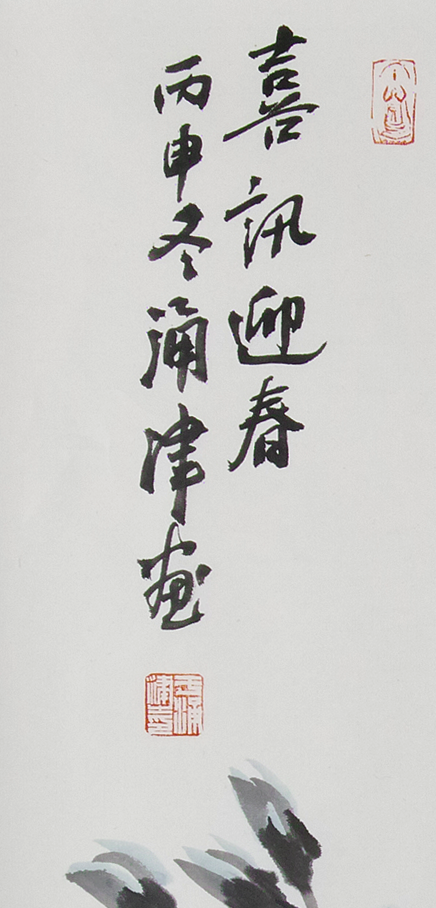 喜訊迎春
丙申冬涌津画